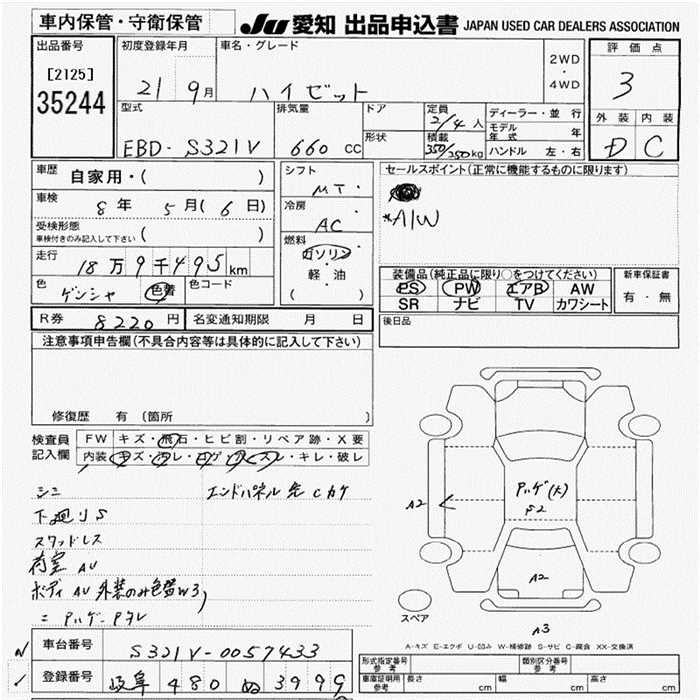 車内保管・守衛保管
JU 愛知 出品申込書 JAPAN USED CAR DEALERS ASSOCIATION
出品番号
[2125]
35244
初度登録年月
21 9月
車名・グレード
ハイゼット
2WD
・
4WD
評価点
3
外装 内装
D C
型式
EBD-S321V
排気量
660 CC
ドア
形状
定員
2/4 人
積載
350/250kg
ディーラー・並 行
モデル年式 年
ハンドル 左・右
車歴
自家用・( )
車検
8 年 5 月( 6 日)
受検形態
車検付きのみ記入して下さい ( )
走行
18万9千495 km
色
ゲンシャ
色替
色コード
シフト
M T・
冷房
AC
燃料
ガソリン
軽・油
( )
セールスポイント(正常に機能するものに限ります)
*A/W
装備品(純正品に限り○をつけてください)
PS PW エアB AW
SR ナビ TV カワシート
新車保証書
有・無
R券 8220 円
名変通知期限 月 日
後日品
注意事項申告欄(不具合内容等は具体的に記入して下さい)
修復歴 有(箇所 )
検査員
記入欄
FW キズ・飛石・ヒビ割・リペア跡・X要
内装 キズ・汚レ・コゲ・スレ・キレ・破レ
シミ
エンドパネル先Cカケ
下廻りS
スタッドレス
荷室 AU
ボディ AU 外装のみ色替W3,
= Pハゲ-Pタレ
A2
Pハゲ(大)
S2
A2
A3
スペア
A-キズ E-エクボ U-凹み W-補修跡 S-サビ C-腐食 XX-交換済
車台番号
S321V-0057433
登録番号
岐阜 480 ぬ 3999
形式指定番号
参考
類別区分番号
参考
車庫証明用
参考
長さ cm
幅 cm
高さ cm